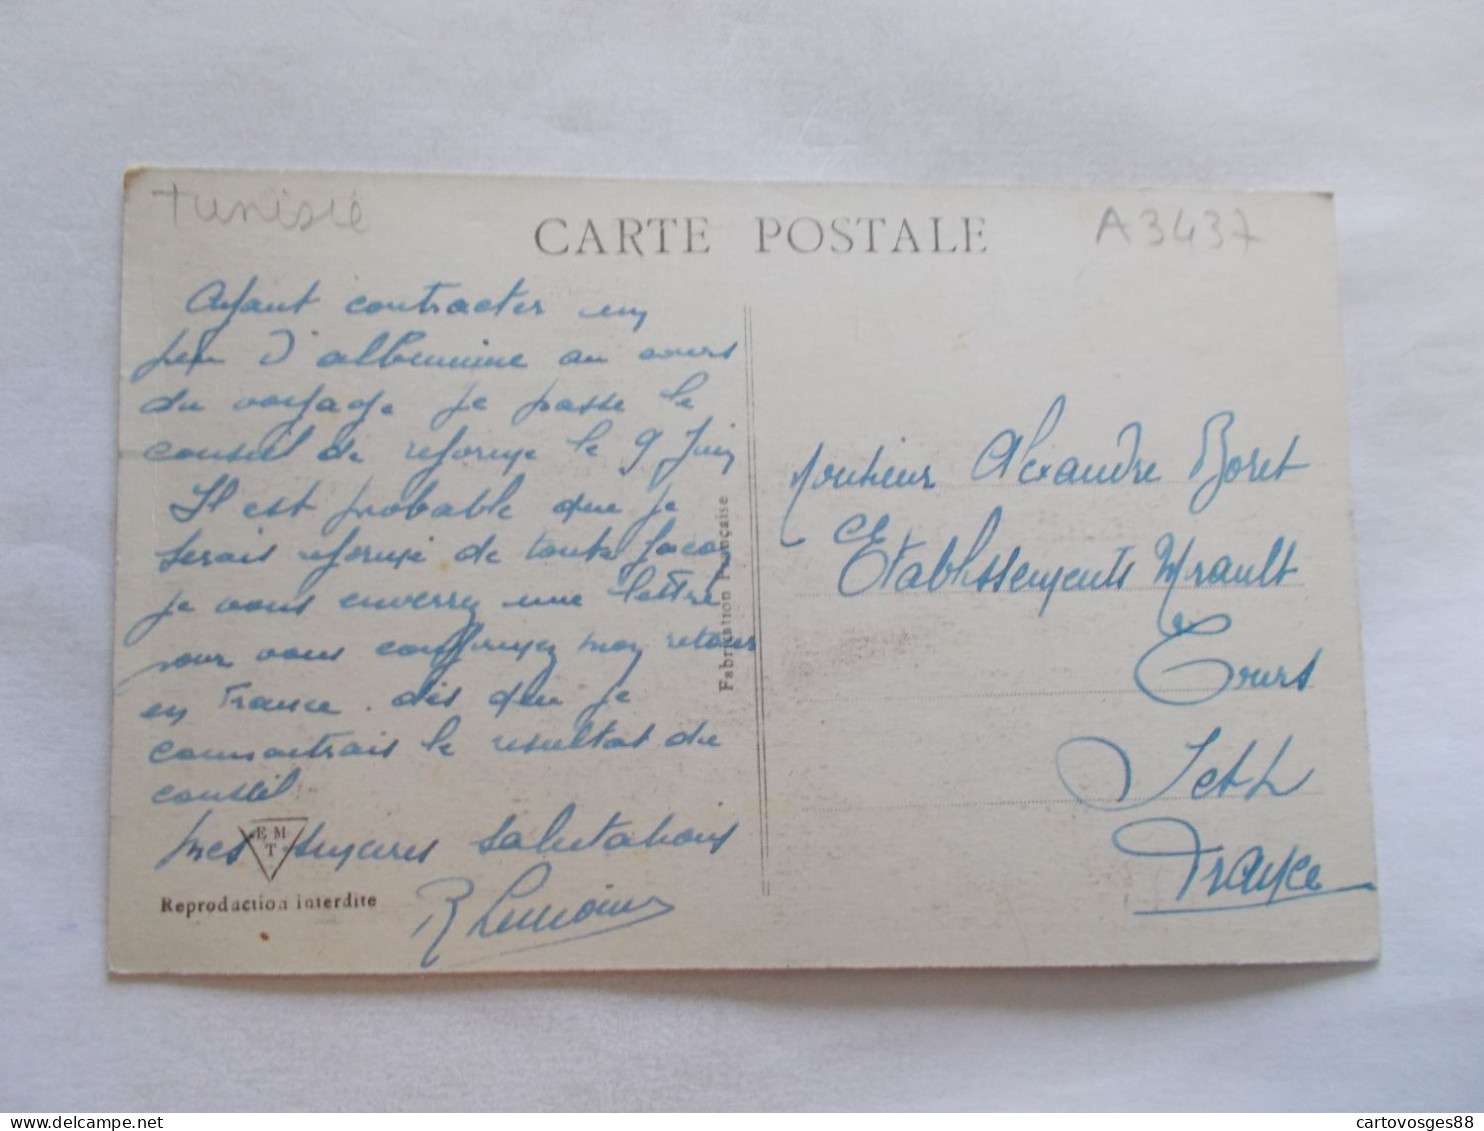 Tunisie
CARTE POSTALE
A3437
Ayant contracter un
peu d'albumine au cours
du voyage je passe le
conseil de reforme le 9 Juin
Il est probable que je
serais reformé de toute facon
je vous enverrez une lettre
pour vous confirmez mon retour
en France. dès que je
connaitrais le resultat du
conseil
mes sinceres Salutations
R Lemoine
E M
T
Reproduction interdite
Fabrication Française
Monsieur Alexandre Boret
Etablissements
Tours
I et L
France
cartovosges88